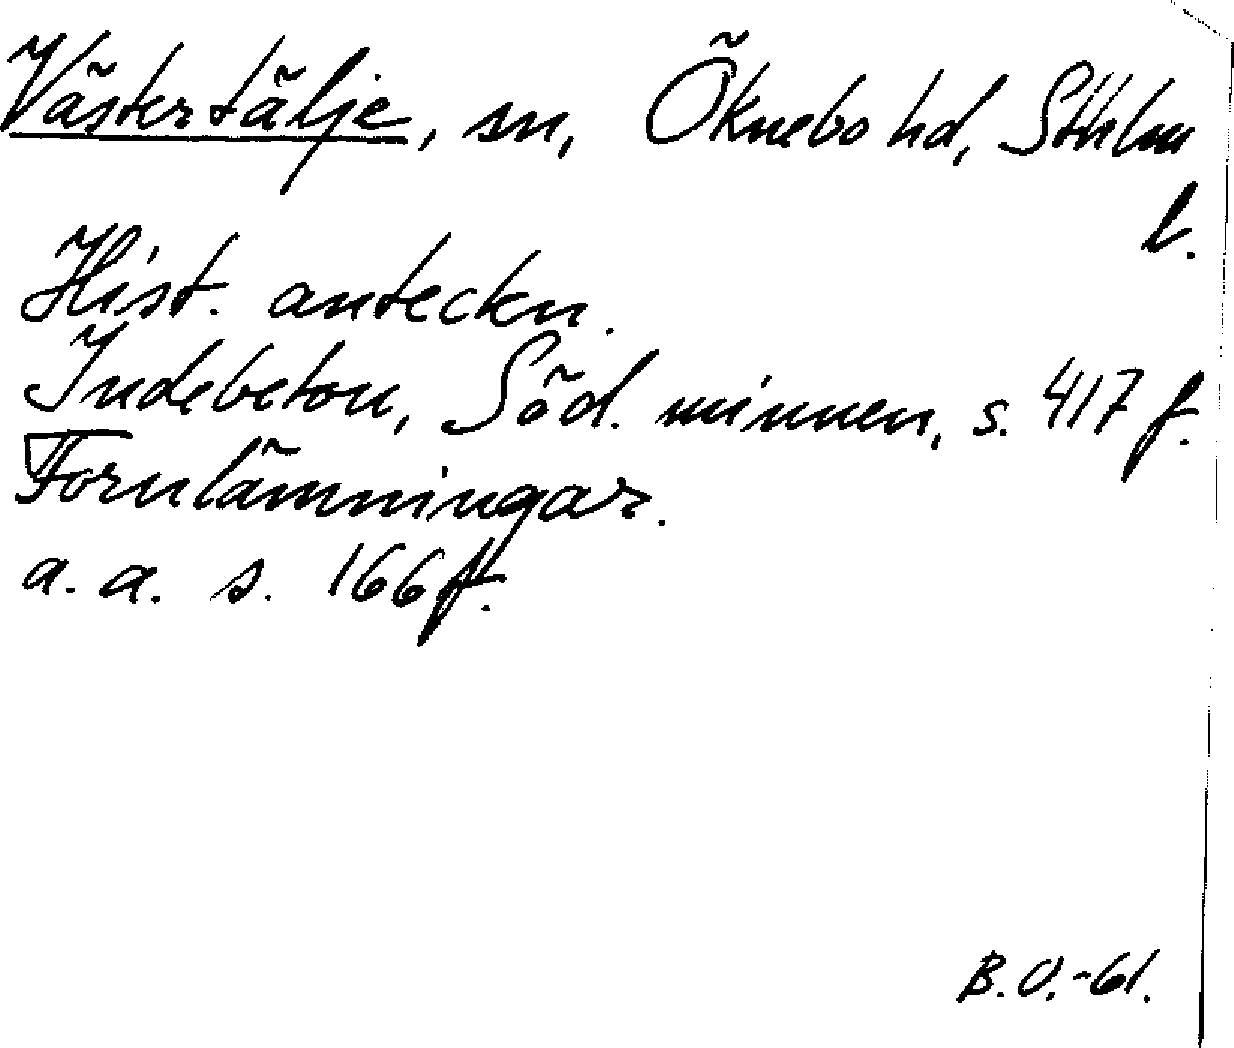 Västertälje, sn, Öknebo hd, Sthlm
l.
Hist. anteckn.
Indebetou, Söd. minnen, s. 417 f.
Fornlämningar.
a. a. s. 166 f.
B.O.-61.